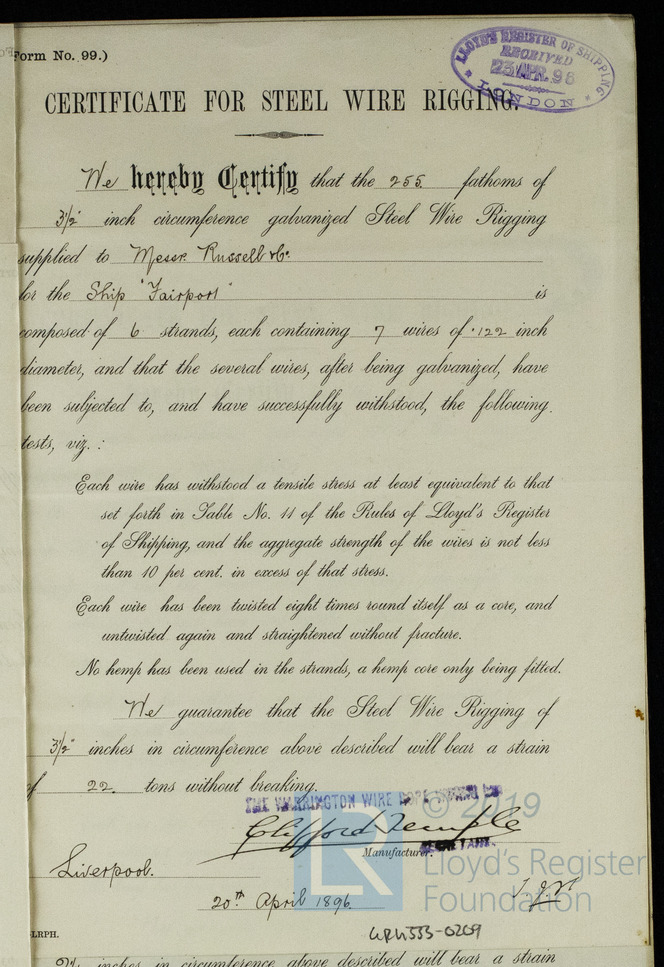 Form No. 99.)
LLOYD'S REGISTER OF SHIPPING
RECEIVED
23 APR. 96
LONDON
CERTIFICATE FOR STEEL WIRE RIGGING.
We hereby Certify that the 255 fathoms of
3½" inch circumference galvanized Steel Wire Rigging
supplied to Messr. Russell & Co.
for the Ship "Fairport" is
composed of 6 strands, each containing 7 wires of .122 inch
diameter, and that the several wires, after being galvanized, have
been subjected to, and have successfully withstood, the following
tests, viz. :
Each wire has withstood a tensile stress at least equivalent to that
set forth in Table No. 11 of the Rules of Lloyd's Register
of Shipping, and the aggregate strength of the wires is not less
than 10 per cent. in excess of that stress.
Each wire has been twisted eight times round itself as a core, and
untwisted again and straightened without fracture.
No hemp has been used in the strands, a hemp core only being fitted.
We guarantee that the Steel Wire Rigging of
3½" inches in circumference above described will bear a strain
of 22 tons without breaking.
THE WARRINGTON WIRE ROPE
© 2019
Clifford Temple
Manufacturer.
SECRETARY.
LR
Lloyd's Register
Foundation
Liverpool.
20th April 1896.
LRPH.
inches in circumference above described will bear a strain